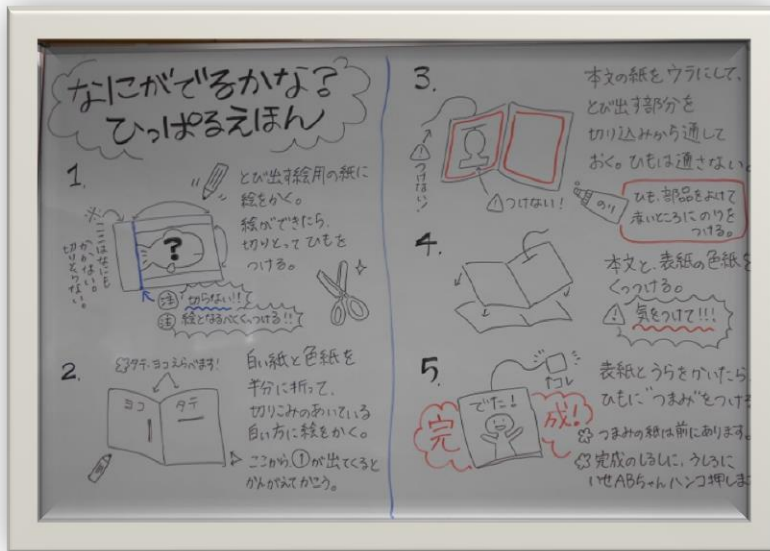 なにがでるかな?
ひっぱるえほん
1.
とび出す絵用の紙に
絵をかく。
絵ができたら、
切りとって ひもを
つける。
※ここはなにも
かかない。
切りとらない。
?
注 切らない!!
注 絵となるべくくっつける!!
2.
タテ・ヨコえらべます!
ヨコ
タテ
白い紙と色紙を
半分に折って、
切りこみのあいている
白い方に絵をかく。
ここから、①が出てくると
かんがえてかこう。
3.
本文の紙をウラにして、
とび出す部分を
切り込みから通して
おく。ひもは通さない。
つけない!
つけない!
のり
ひも、部品をよけて
赤いところに のりを
つける。
4.
本文と、表紙の色紙を
くっつける。
気をつけて!!!
5.
コレ
でた!
完成!
表紙とうらをかいたら
ひもに"つまみ"をつける
つまみの紙は前にあります。
完成のしるしに、うしろに
いせABちゃんハンコ押しま